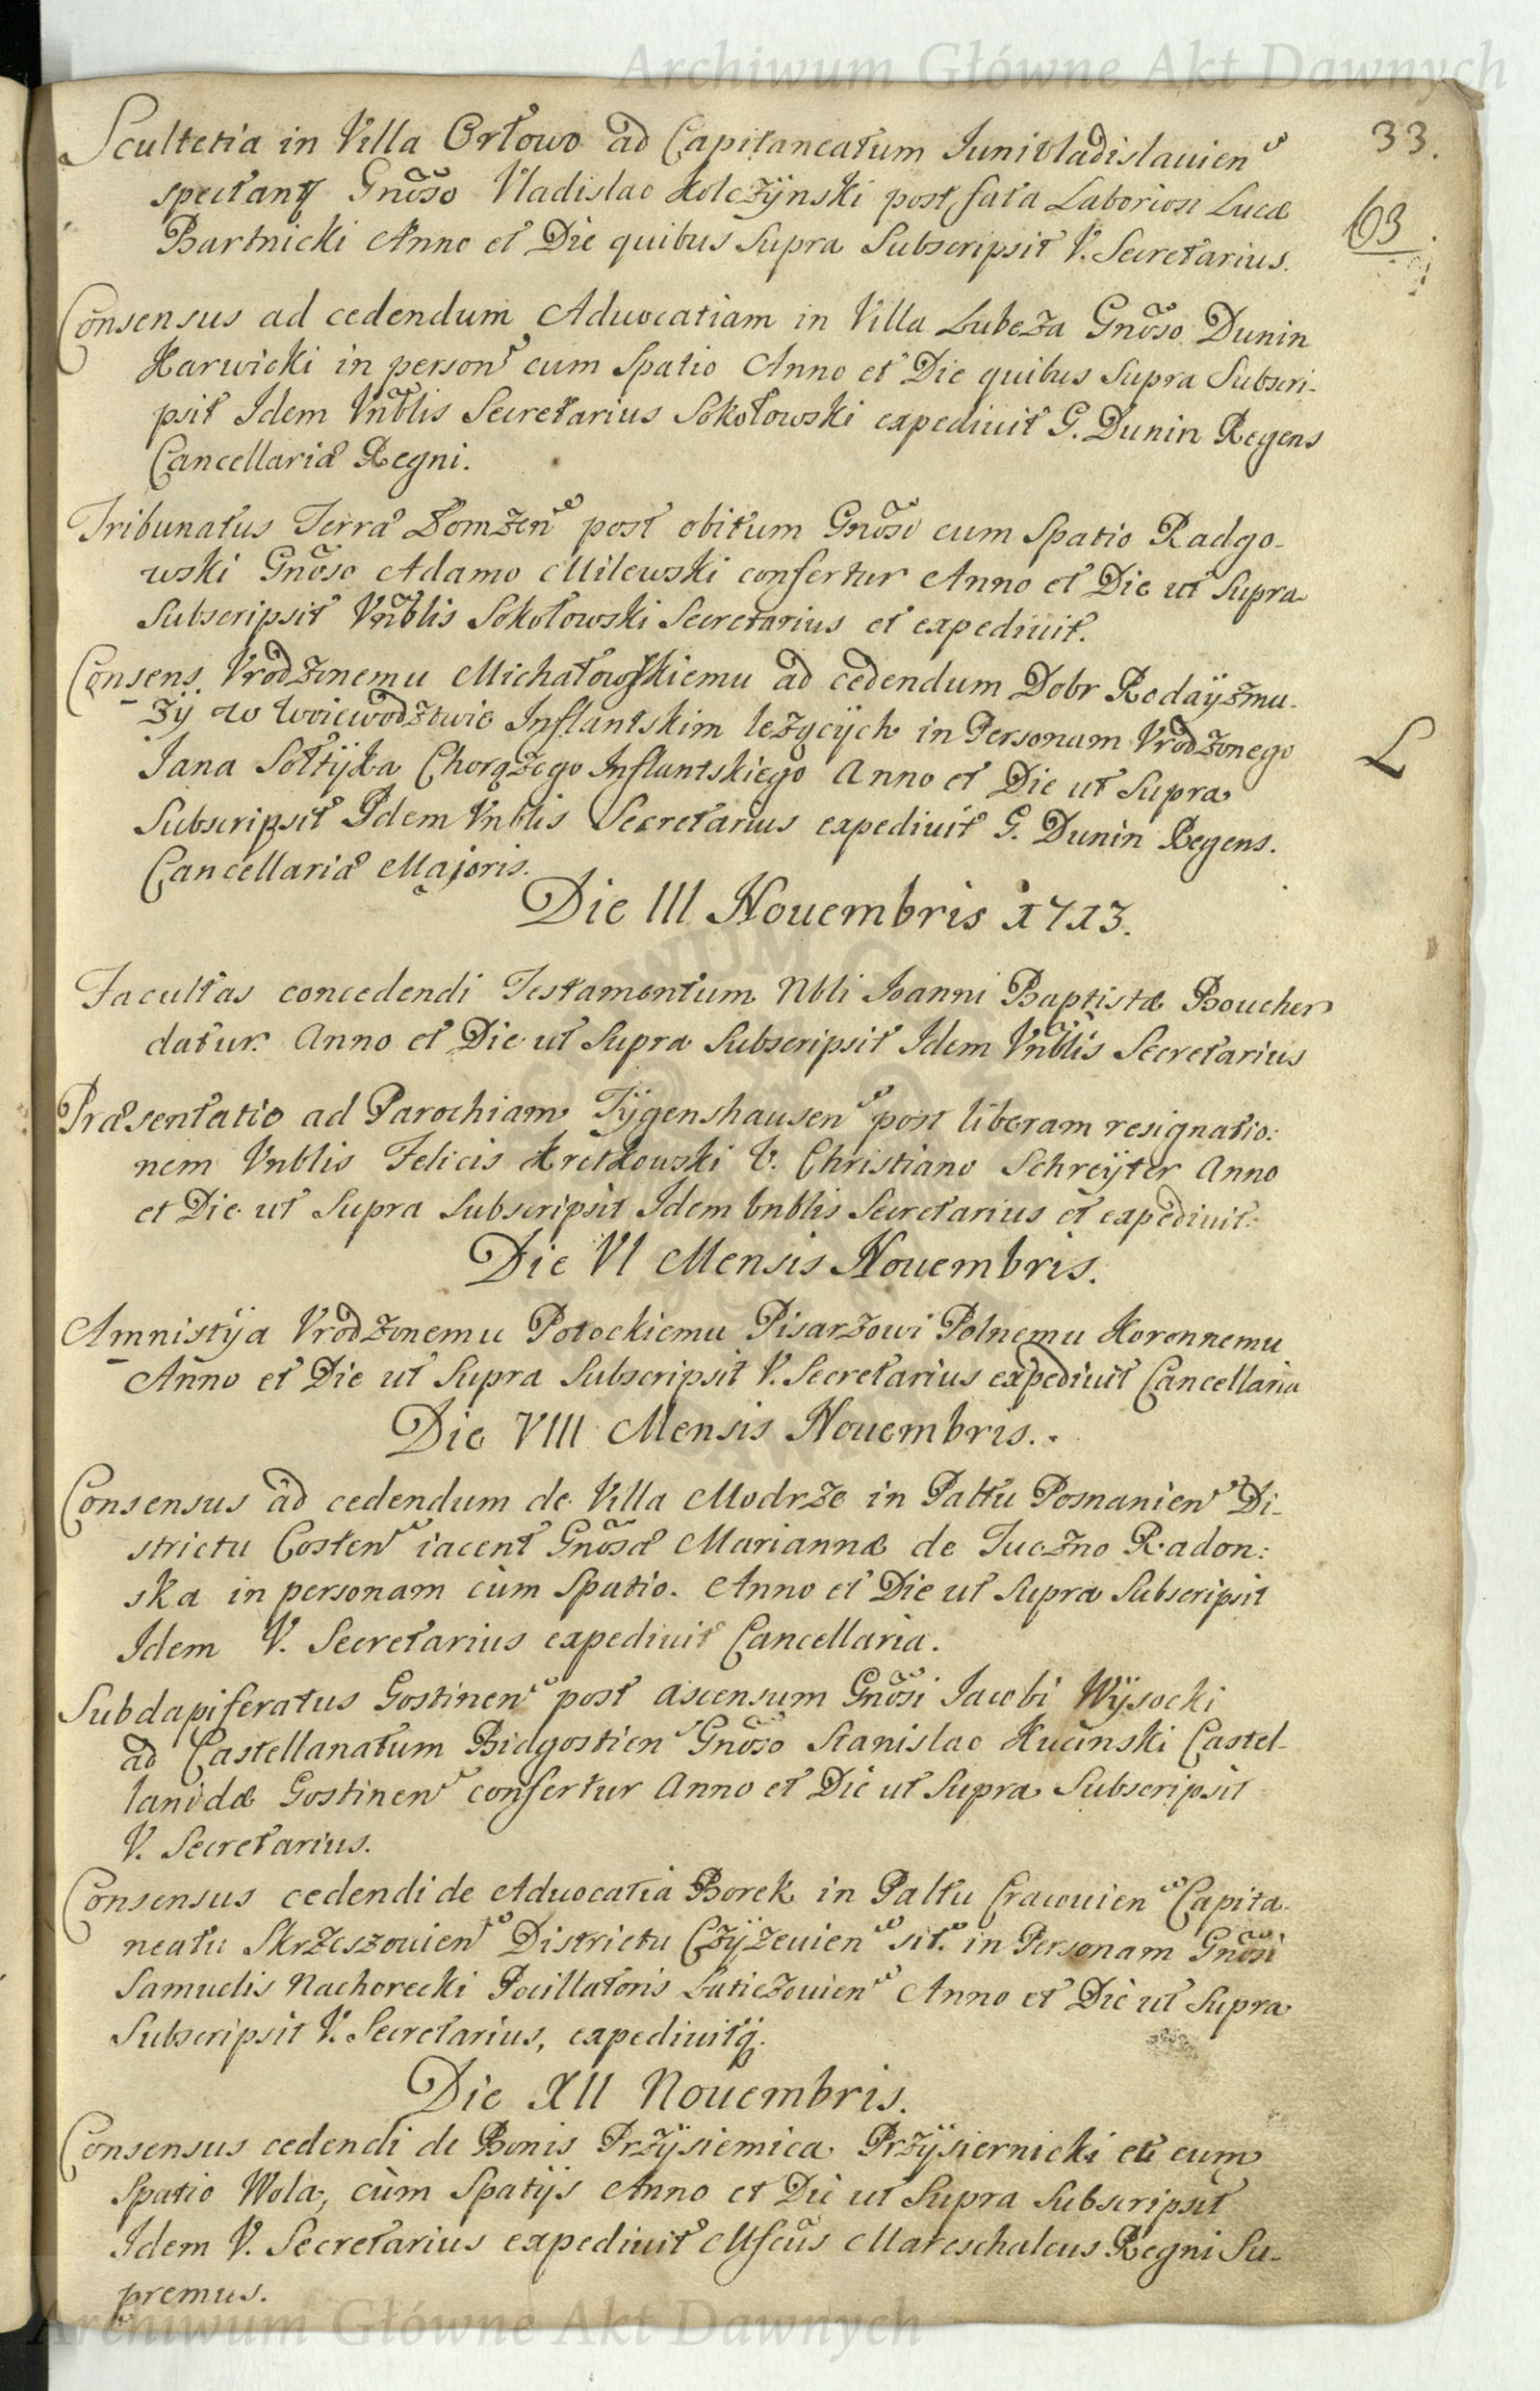 Archiwum Główne Akt Dawnych
33.
63
Scultetia in Villa Orłowo ad Capitaneatum Junivladislauien
spectanţ Gnõso Vladislao Kolczÿnski post fata Laboriosi Lucæ
Bartnicki Anno et Die quibus Supra Subscripsit V. Secretarius.
Consensus ad cedendum Aduocatiam in Villa Lubcza Gnõso Dunin
Karwicki in person cum Spatio Anno et Die quibus Supra Subscri-
psit Idem Vnblis Secretarius Sokołowski expediuit G. Dunin Regens
Cancellariæ Regni.
Tribunatus Terræ Łomzen post obitum Gnõsi cum Spatio Radgo-
wski Gnõso Adamo Milewski confertur Anno et Die ut Supra
Subscripsit Vnblis Sokołowski Secretarius et expediuit.
Consens Vrodzonemu Michałowskiemu ad cedendum Dobr Rodaÿzmu-
zÿ w woiewodztwie Inflantskim lezącÿch in Personam Vrodzonego
Jana Sołtÿka Chorązego Inflantskiego Anno et Die ut Supra
L
Subscripsit Idem Vnblis Secretarius expediuit G. Dunin Regens.
Cancellariæ Majoris.
Die III Nouembris 1713.
Facultas concedendi Testamentum Nbli Joanni Baptistæ Boucher
datur. Anno et Die ut Supra Subscripsit Idem Vnblis Secretarius
Præsentatio ad Parochiam Tÿgenshausen post liberam resignatio:
nem Vnblis Felicis Kretkowski V. Christiano Schreÿter Anno
et Die ut Supra Subscripsit Idem Vnblis Secretarius et expediuit.
Die VI Mensis Nouembris.
Amnistÿa Vrodzonemu Potockiemu Pisarzowi Polnemu Koronnemu
Anno et Die ut Supra Subscripsit V. Secretarius expediuit Cancellaria
Die VIII Mensis Nouembris.
Consensus ad cedendum de Villa Modrze in Paltu Posnanien Di-
strictu Costen iacent Gnõsæ Mariannæ de Tuczno Radon:
ska in personam cum Spatio. Anno et Die ut Supra Subscripsit
Idem V. Secretarius expediuit Cancellaria.
Subdapiferatus Gostinen post ascensum Gnõsi Jacobi Wÿsocki
ad Castellanatum Bidgostien Gnõso Stanislao Kucinski Castel-
lanidæ Gostinen confertur Anno et Die ut Supra Subscripsit
V. Secretarius.
Consensus cedendi de Aduocatia Borek in Paltu Cracouien Capita-
neatu Skrzeszouien Districtu Czÿzeuien sit. in Personam Gnõsi
Samuelis Nachorecki Pocillatoris Laticzouien Anno et Die ut Supra
Subscripsit V. Secretarius, expediuitq.
Die XII Nouembris.
Consensus cedendi de Bonis Przÿsiemica Przÿsiernicki et cum
Spatio Wola, cùm Spatijs Anno et Die ut Supra Subscripsit
Idem V. Secretarius expediuit Msčus Mareschalcus Regni Su-
premus.
Archiwum Główne Akt Dawnych